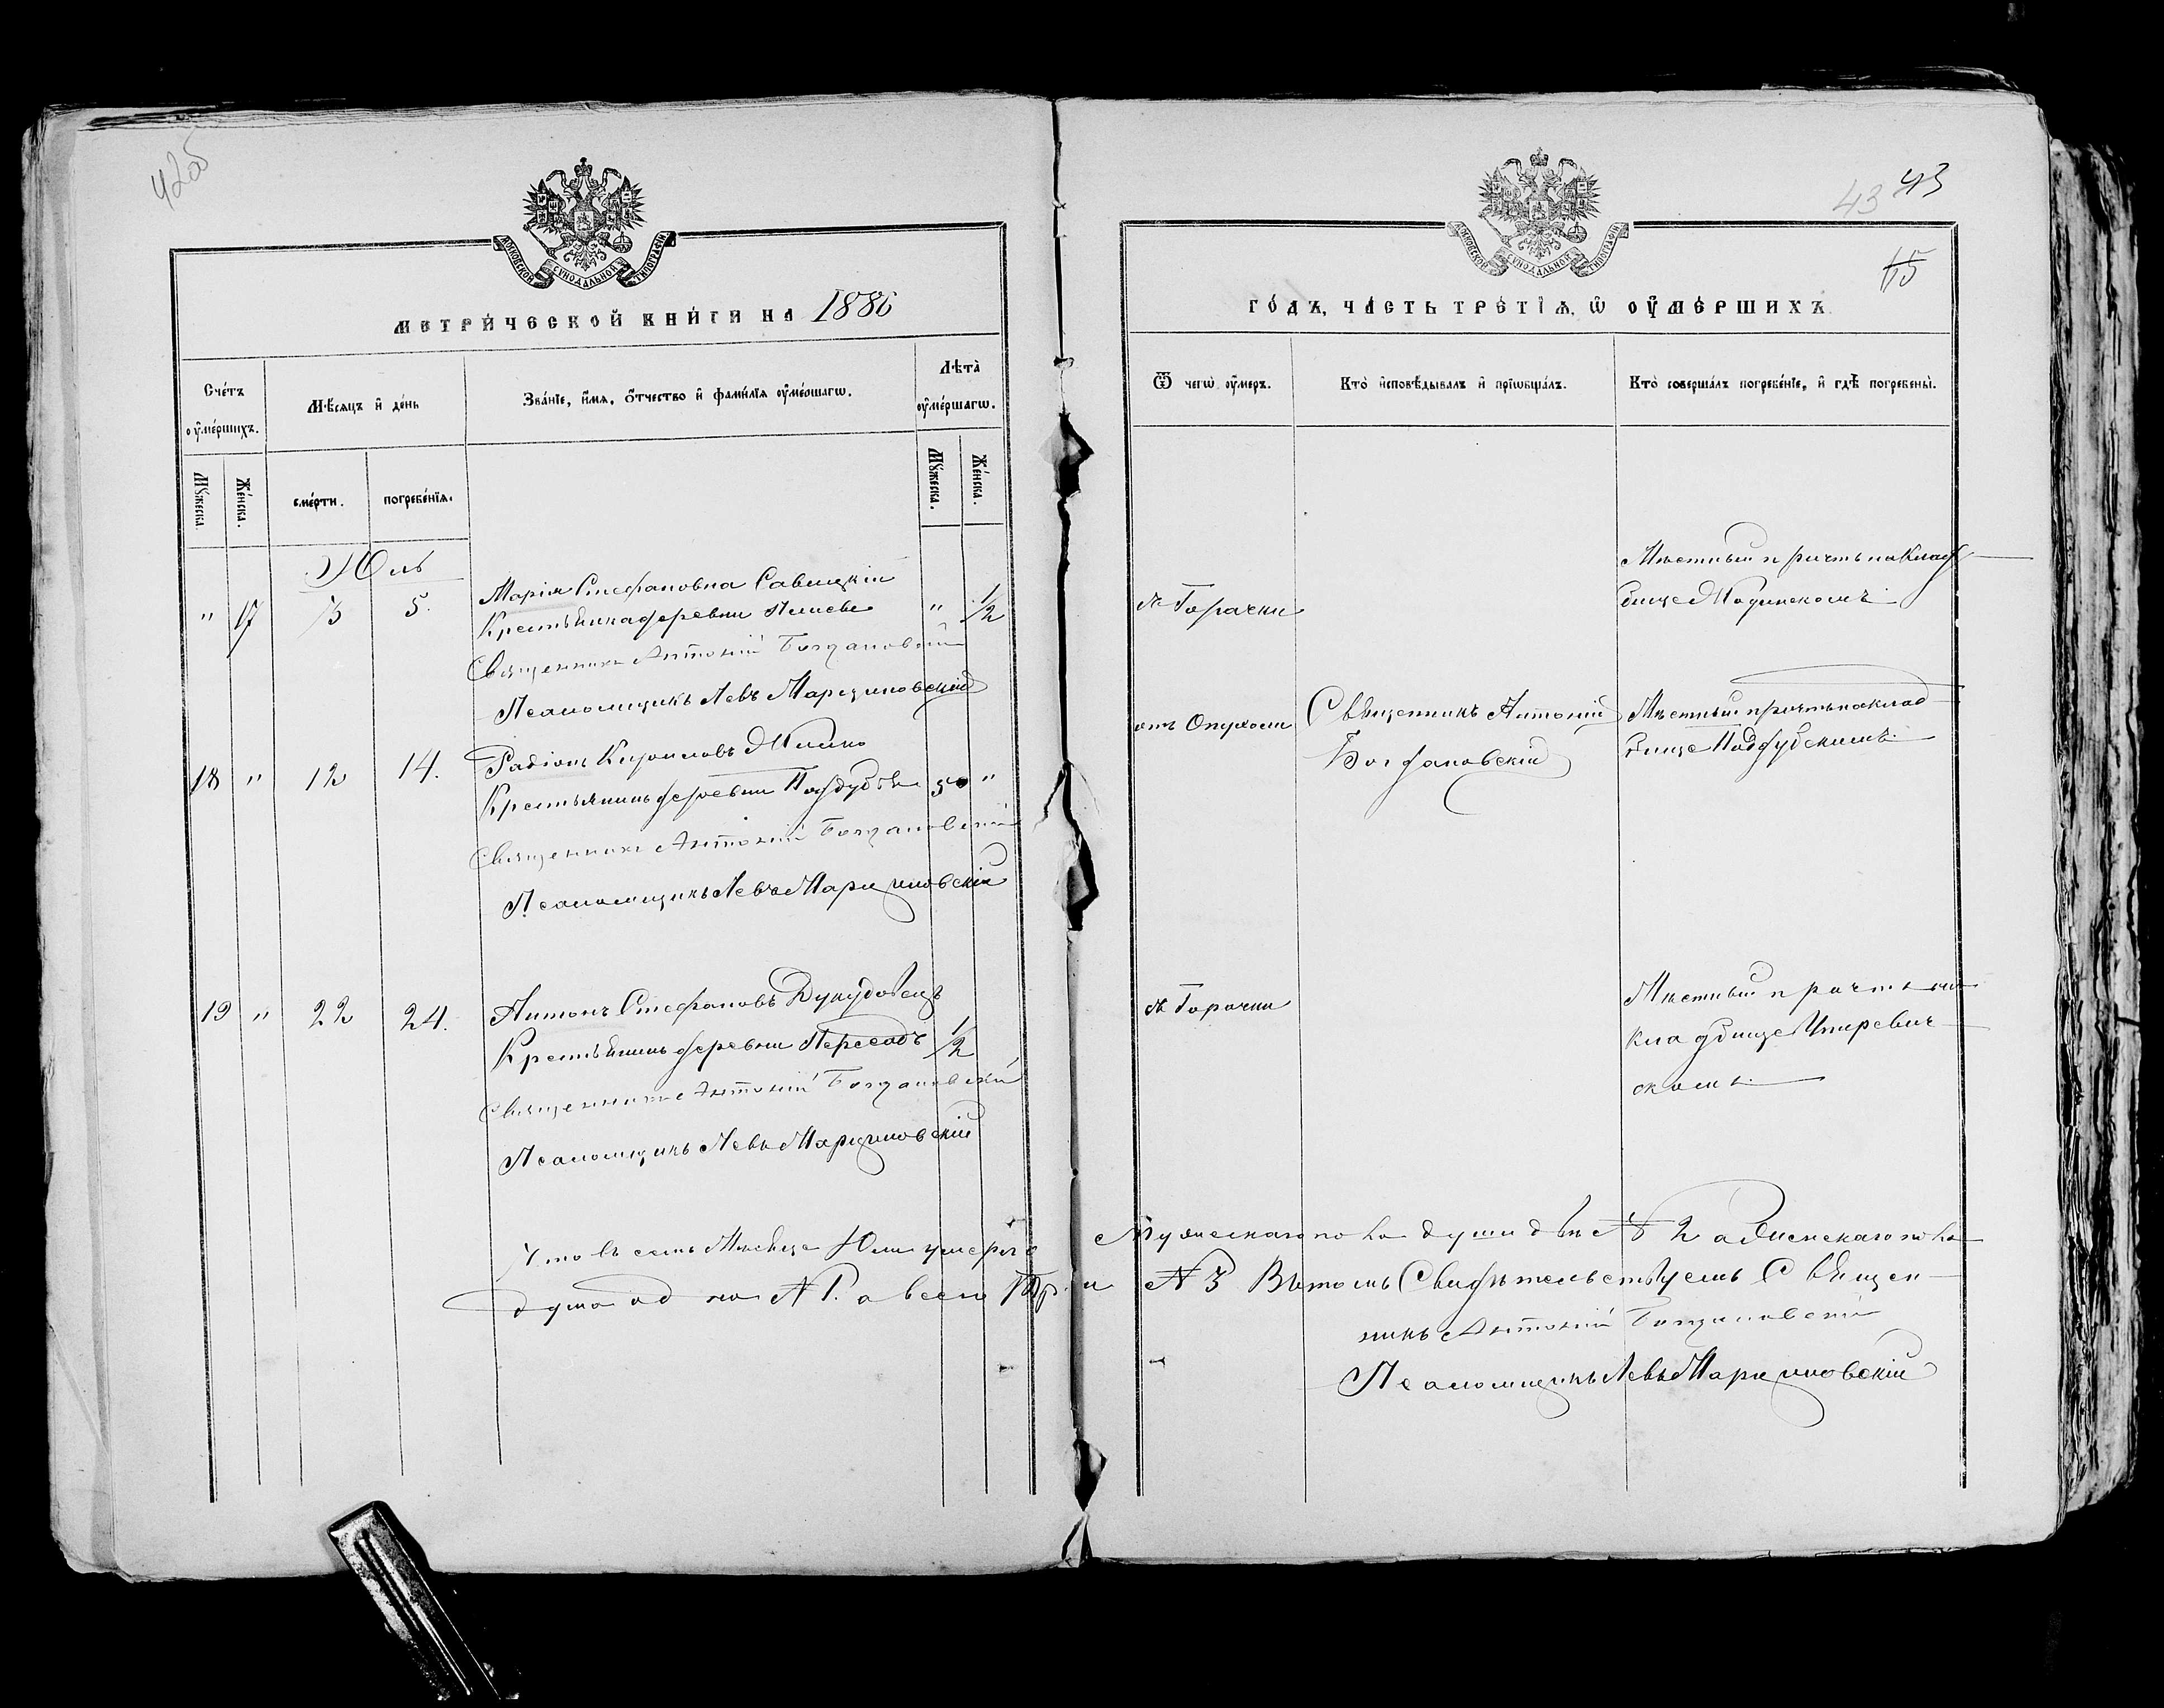 42об
МОСКОВСКОЙ СѴНОДАЛЬНОЙ ТИПОГРАФІИ
МЕТРИ́ЧЕСКОЙ КНИ́ГИ НА 1886
Сче́тъ оу҆ме́ршихъ.
Мѣ́сяцъ и҆ де́нь
Зва́нїе, и҆́мя, ѻ҆́тчество и҆ фами́лїя оу҆ме́ршагѡ.
Лѣ́та̀ оу҆ме́ршагѡ.
Мꙋ́жеска.
Же́нска.
сме́рти.
погребе́нїя.
Мꙋ́жеска.
Же́нска.
Юль
" 17 3 5. Марія Стефановна Савицкіи " 1/2
Крестьянка деревни
Священникъ Антоній Богдановскій
Псаломщикъ Левъ Марциновскій
18 " 12 14. Радіонъ Кириловъ
Крестьянинъ деревни Поддубья 50 "
Священникъ Антоній Богдановскій
Псаломщикъ Левъ Марциновскій
19 " 22 24. Антонъ Стефановъ Дукудовецъ
Крестьянинъ деревни Пересадъ 1/2
Священникъ Антоній Богдановскій
Псаломщикъ Левъ Марциновскій
Что въ семъ Мѣсяце Юли умерло
душа одна № 1. а всего Три
43 43
65
МОСКОВСКОЙ СѴНОДАЛЬНОЙ ТИПОГРАФІИ
ГО́ДЪ, ЧА́СТЬ ТРЕ́ТЇѦ, Ѡ҆ ОУ҆МЕ́РШИХЪ
Ѿ чегѡ̀ оу҆́меръ.
Кто̀ и҆сповѣ́дывалъ и҆ прїѡбща́лъ.
Кто̀ соверша́лъ погребе́нїе, и҆ гдѣ̀ погребены̀.
Мѣстный причтъ на Клад
бище
Горачки
отъ Опухоли
Священникъ Антоній
Богдановскій
Мѣстный причтъ на клад
бище Поддубскимъ
Горачки
Мѣстный причтъ на
кладбище Ушревич
скомъ
Мужескаго пола души двѣ № 2 а Женскаго пола
№ 3 Въ томъ Свидѣтельствуемъ Священ
никъ Антоній Богдановскій
Псаломщикъ Левъ Марциновскій